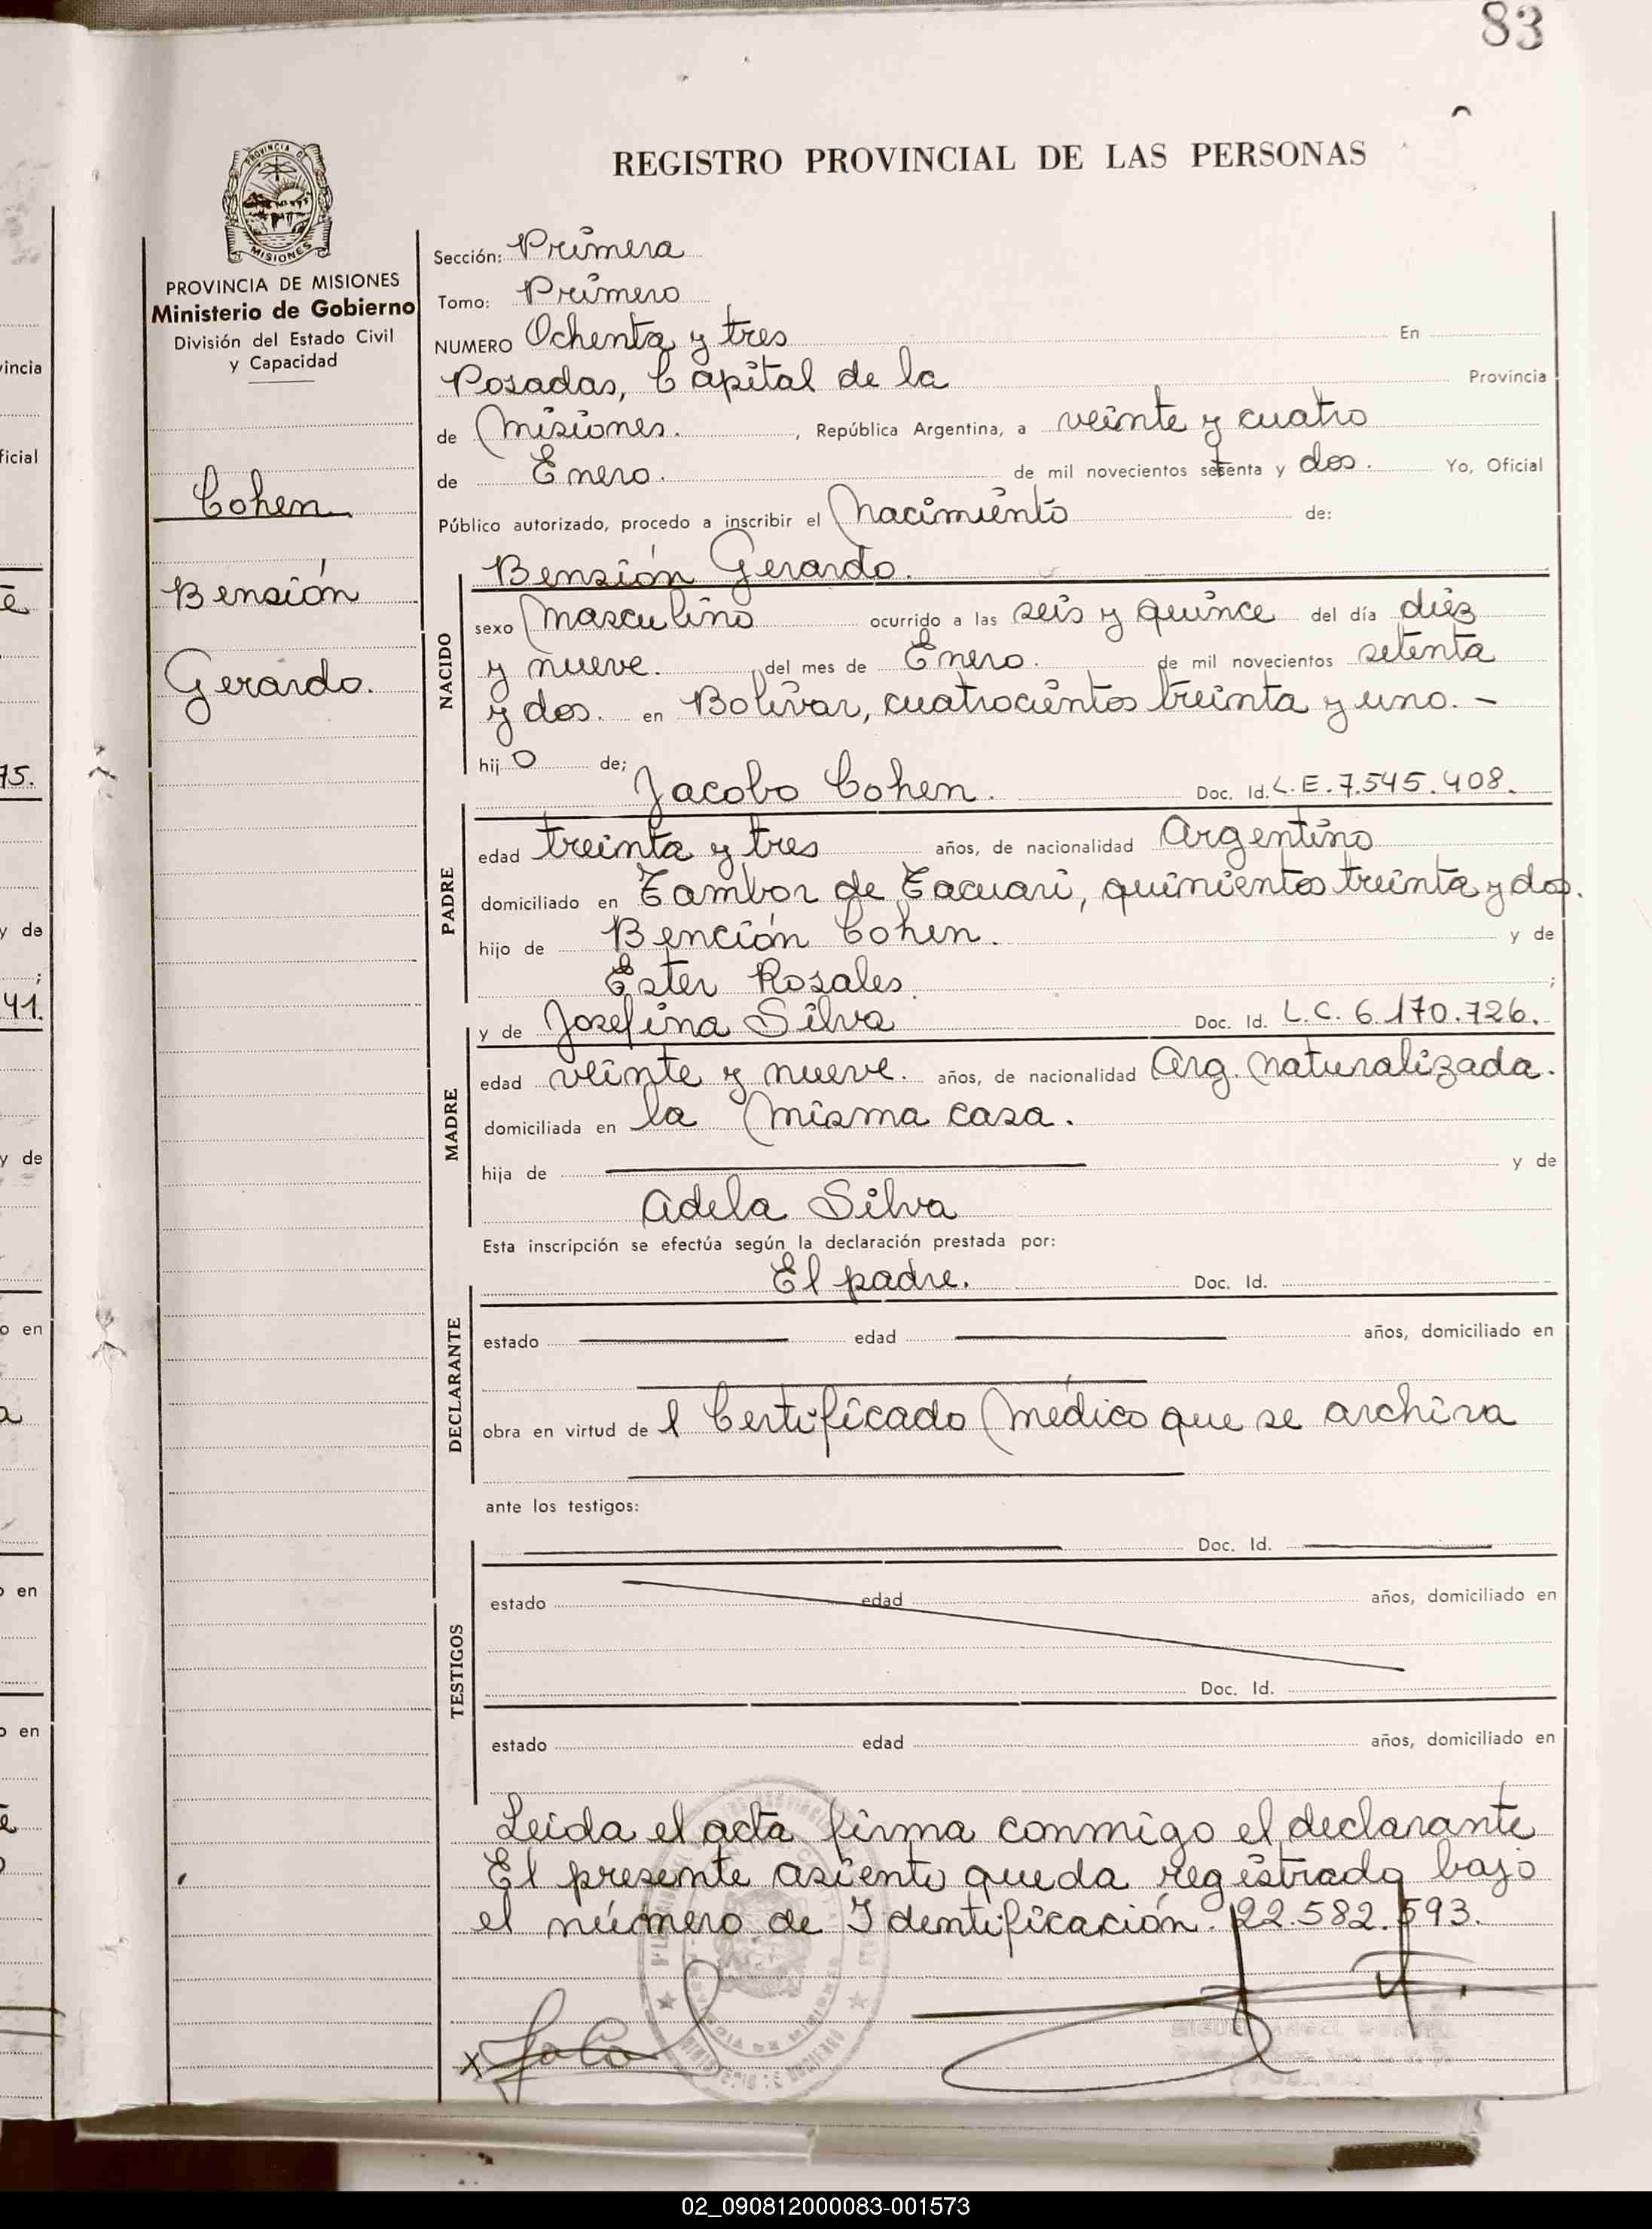 83
REGISTRO PROVINCIAL DE LAS PERSONAS
PROVINCIA DE MISIONES
Ministerio de Gobierno
División del Estado Civil
y Capacidad
Cohen
Bensión
Gerardo.
Sección: Primera
Tomo: Primero
NUMERO Ochenta y tres En
Posadas, Capital de la Provincia
de Misiones. , República Argentina, a veinte y cuatro
de Enero. de mil novecientos setenta y dos. Yo, Oficial
Público autorizado, procedo a inscribir el Nacimiento de:
Bensión Gerardo.
NACIDO
sexo Masculino ocurrido a las seis y quince del día diez
y nueve. del mes de Enero. de mil novecientos setenta
y dos. en Bolívar, cuatrocientos treinta y uno. -
hij o de; Jacobo Cohen. Doc. Id. L.E. 7.545.408.
PADRE
edad treinta y tres años, de nacionalidad Argentino
domiciliado en Tambor de Tacuari, quinientos treinta y dos.
hijo de Bención Cohen. y de
Ester Rosales. ;
y de Josefina Silva Doc. Id. L.C. 6.170.726.
MADRE
edad veinte y nueve. años, de nacionalidad Arg. Naturalizada.
domiciliada en la Misma casa.
hija de y de
Adela Silva
Esta inscripción se efectúa según la declaración prestada por:
El padre. Doc. Id.
DECLARANTE
estado edad años, domiciliado en
obra en virtud de l Certificado Médico que se archiva
ante los testigos:
Doc. Id.
TESTIGOS
estado edad años, domiciliado en
Doc. Id.
estado edad años, domiciliado en
Leida el acta firma conmigo el declarante
El presente asiento queda registrado bajo
el número de Identificación. 22.582.593.
02_090812000083-001573